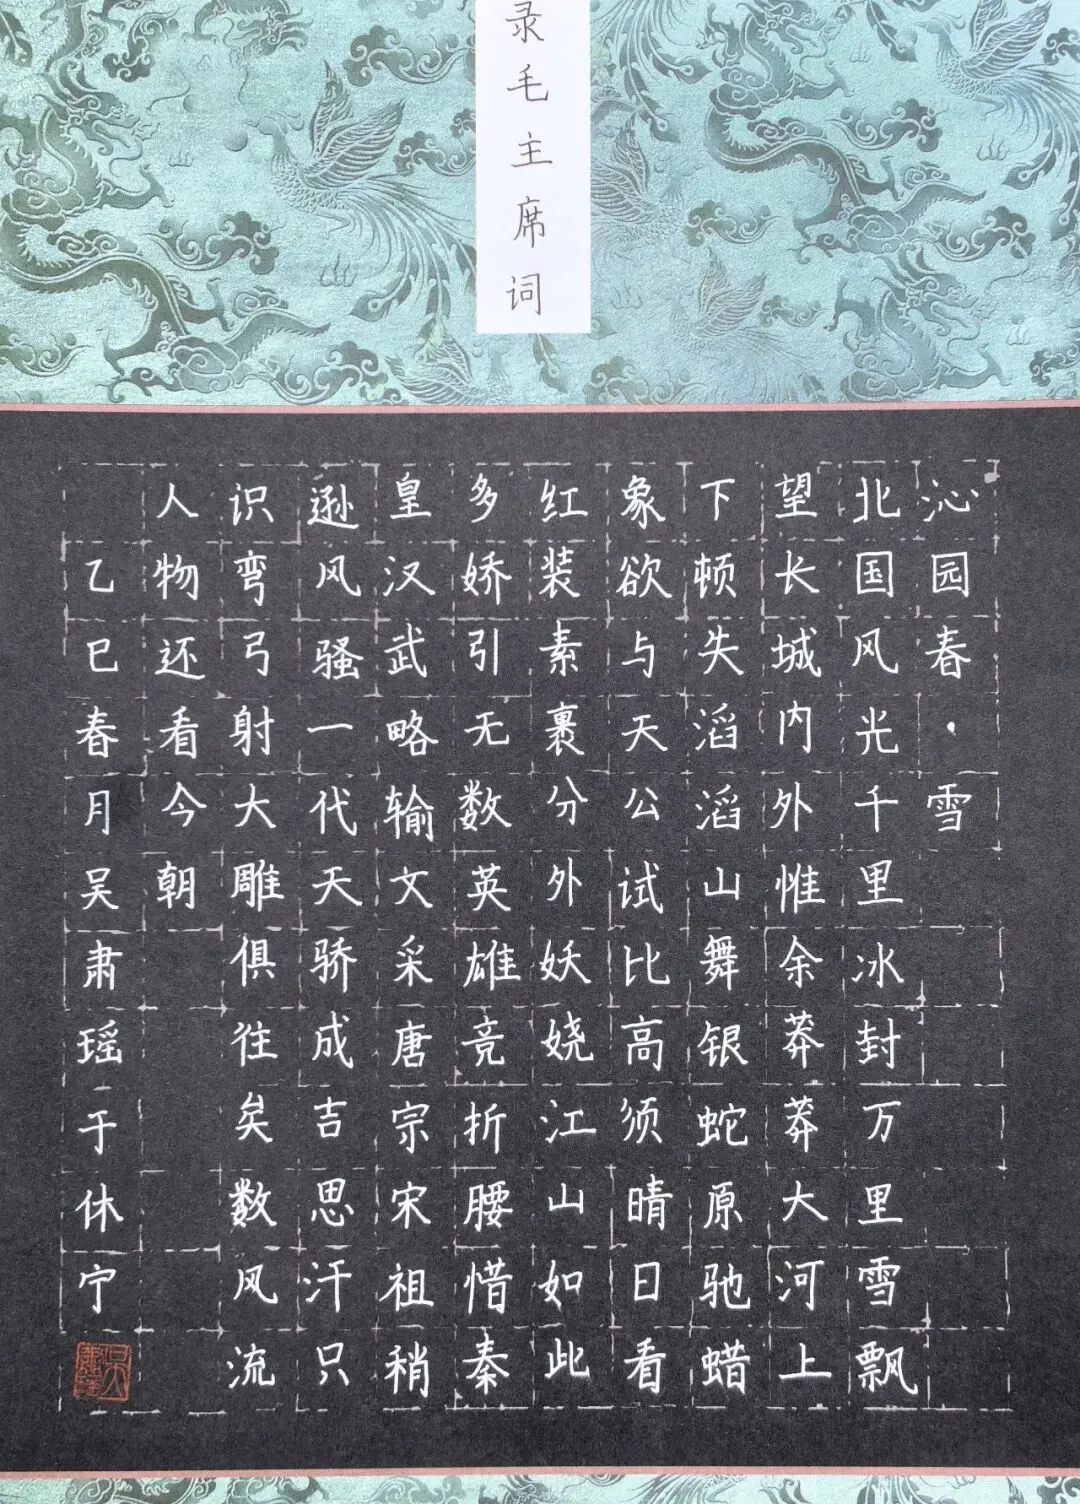 录毛主席词
沁园春·雪
北国风光千里冰封万里雪飘
望长城内外惟余莽莽大河上
下顿失滔滔山舞银蛇原驰蜡
象欲与天公试比高须晴日看
红装素裹分外妖娆江山如此
多娇引无数英雄竞折腰惜秦
皇汉武略输文采唐宗宋祖稍
逊风骚一代天骄成吉思汗只
识弯弓射大雕俱往矣数风流
人物还看今朝
乙巳春月吴肃瑶于休宁